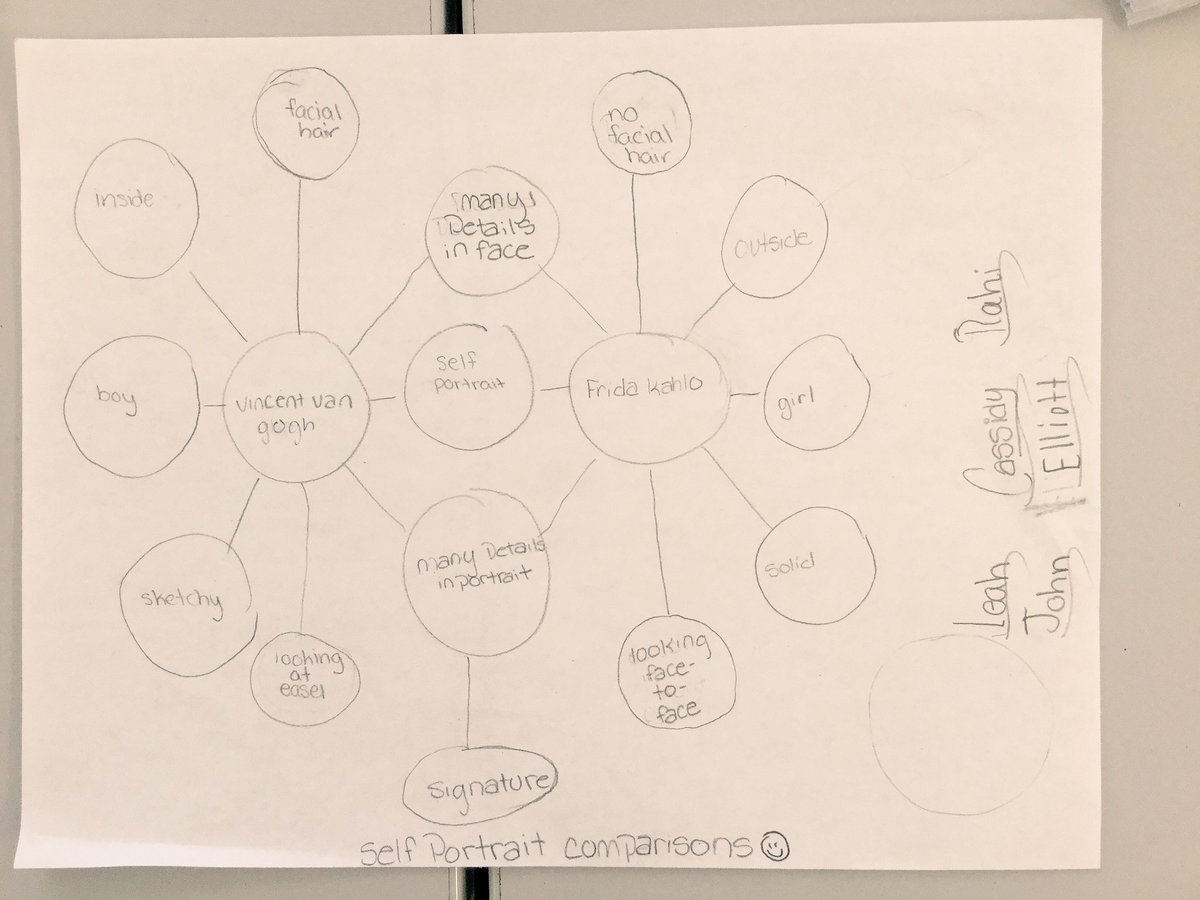 facial
hair
no
facial
hair
inside
many
Details
in face
outside
self
portrait
boy
vincent van
gogh
Frida Kahlo
girl
many Details
in portrait
solid
sketchy
looking
at
easel
looking
face-
to-
face
signature
self Portrait comparisons
Rahi
Cassidy
Elliott
Leah
John